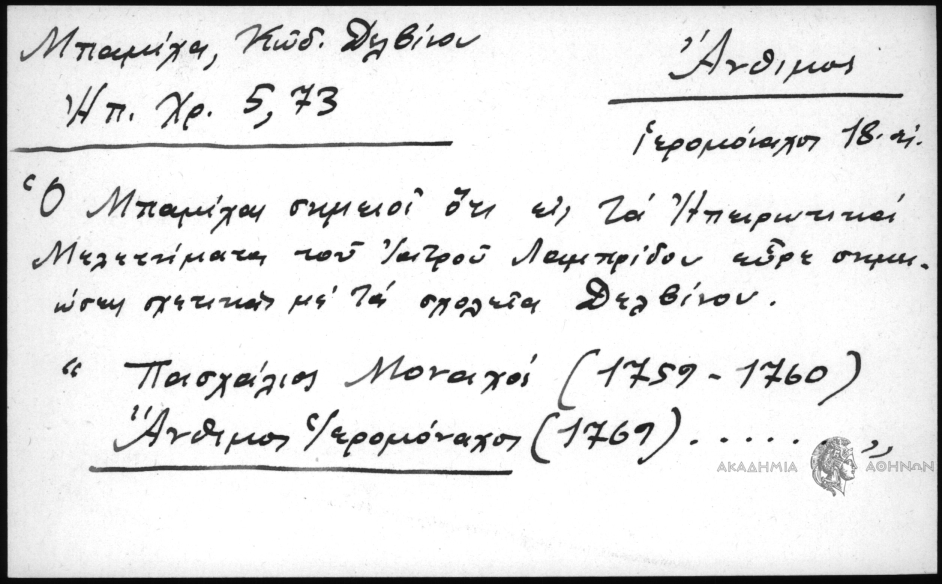 Μπαμίχα, Κώδ. Δελβίνου
Ἠπ. Χρ. 5,73
Ἄνθιμος
ἱερομόναχος 18. αἰ.
Ὁ Μπαμίχας σημειοῖ ὅτι εἰς τά Ἠπειρωτικά
Μελετήματα τοῦ Ἰατροῦ Λαμπρίδου εὗρε σημει-
ώσεις σχετικάς μέ τά σχολεῖα Δελβίνου.
“ Πασχάλιος Μοναχός (1759 - 1760)
Ἄνθιμος Ἱερομόναχος (1769) . . . . . . . ”
ΑΚΑΔΗΜΙΑ ΑΘΗΝΩΝ